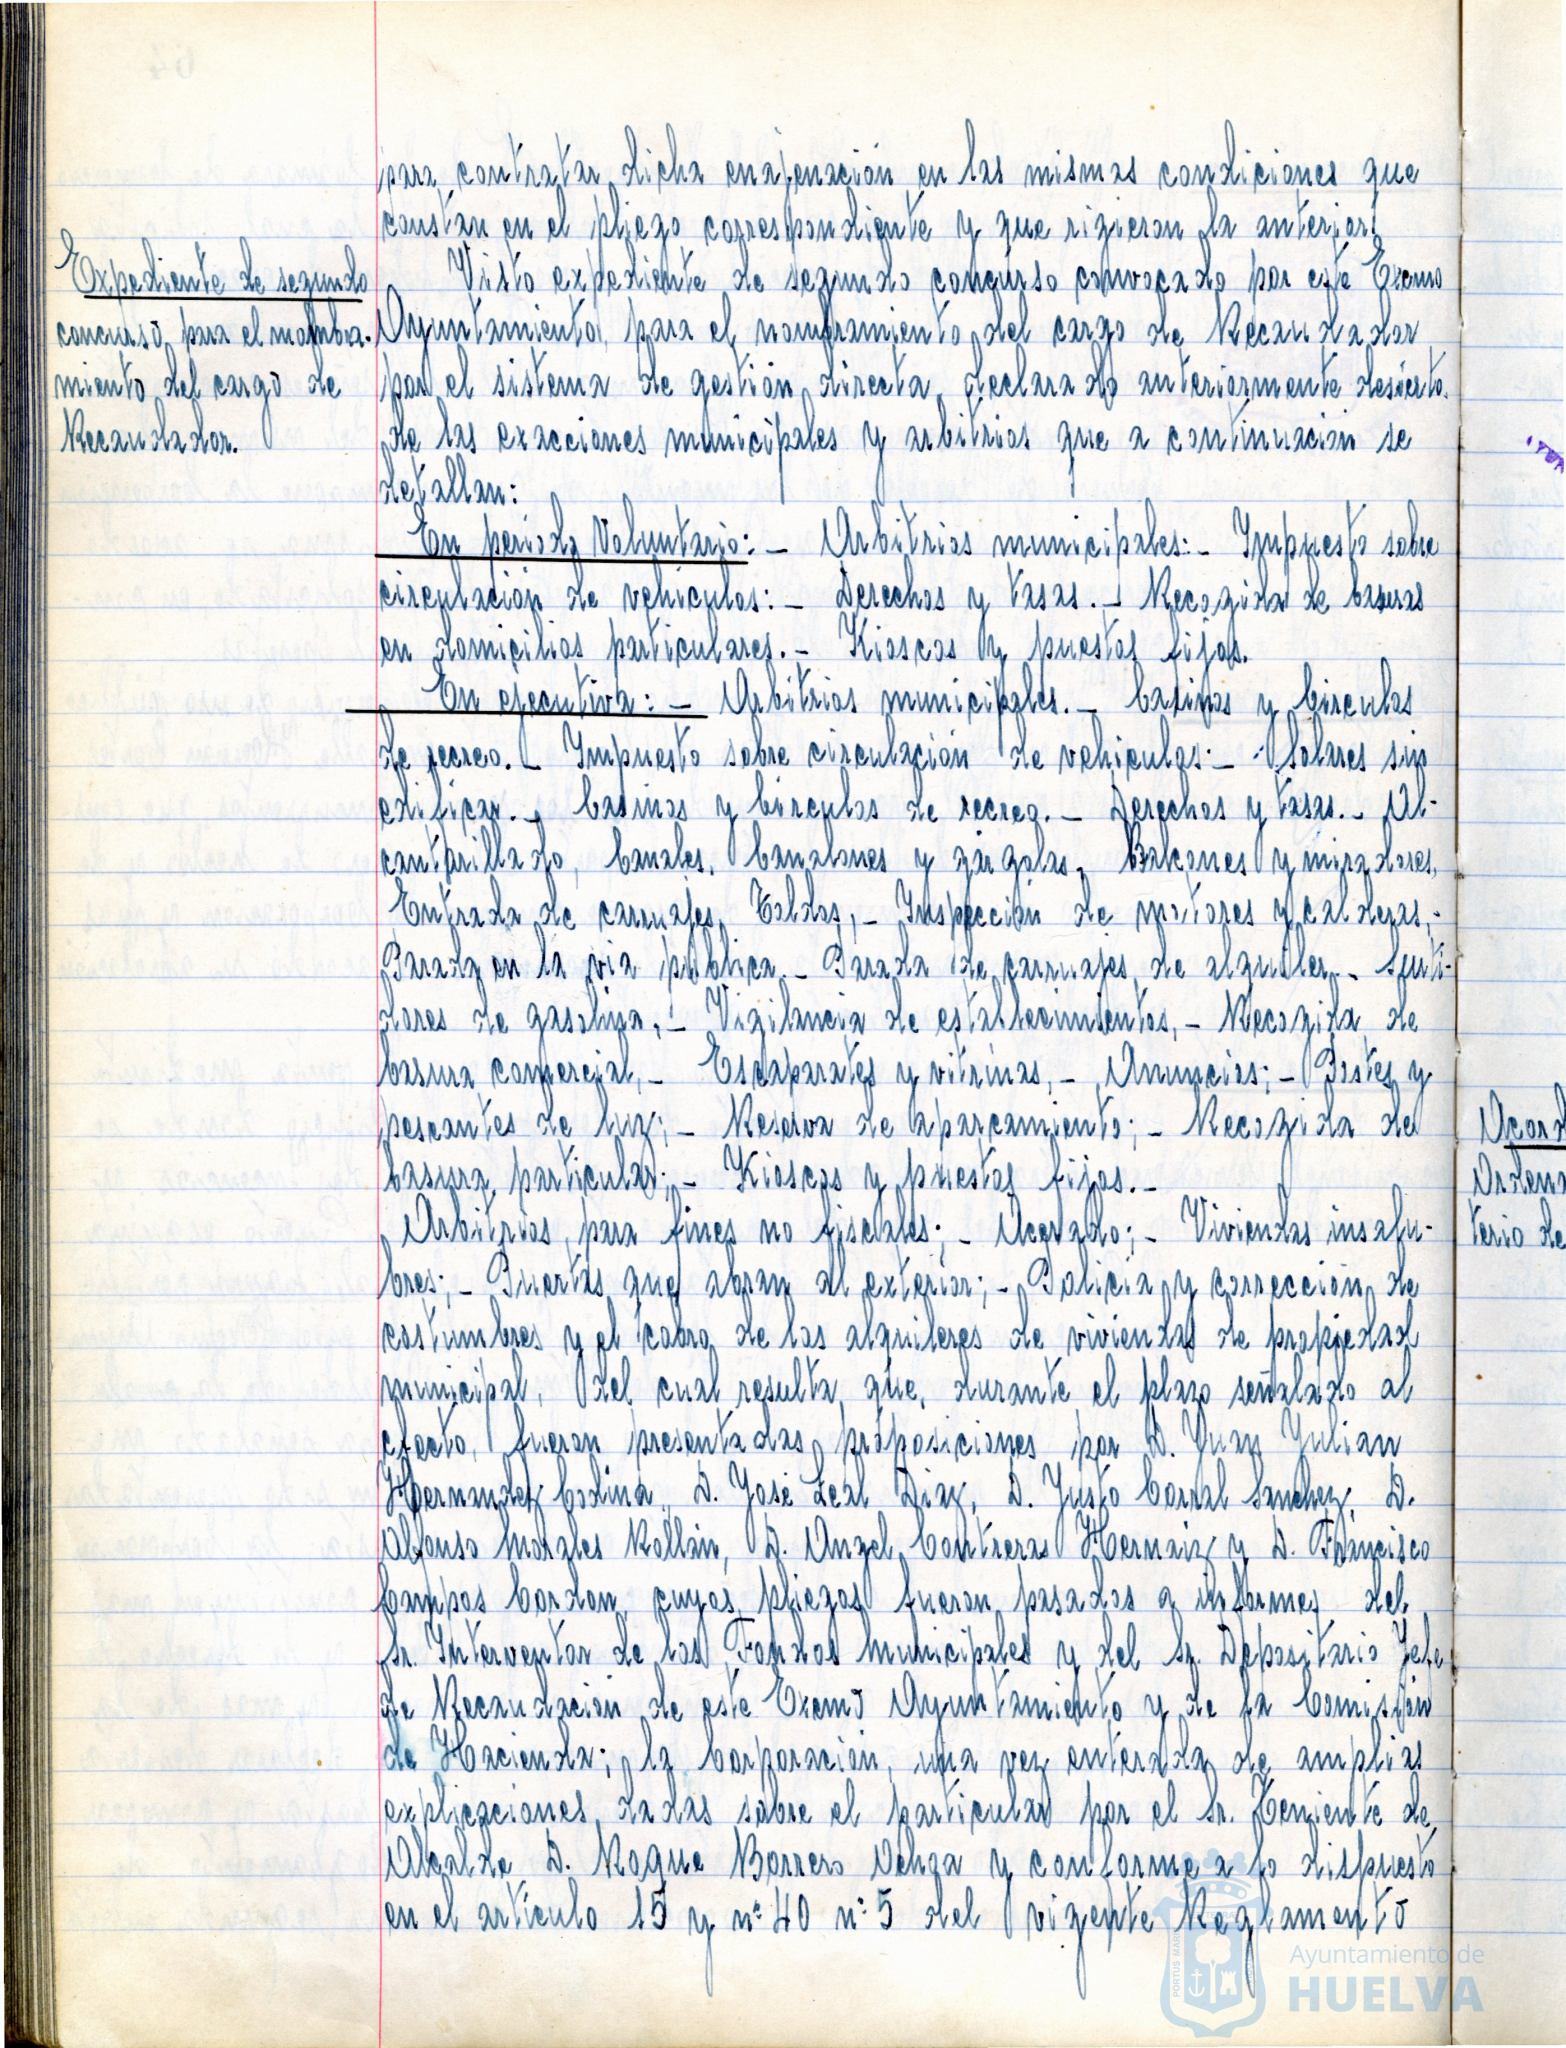 para contratar dicha enajenación en las mismas condiciones que
constan en el pliego correspondiente y que rigieron la anterior!
Expediente de segundo
concurso para el nombra-
miento del cargo de
Recaudador.
Visto expediente de segundo concurso convocado por este Excmo
Ayuntamiento, para el nombramiento del cargo de Recaudador
por el sistema de gestión directa, declarado anteriormente desierto,
de las exacciones municipales y arbitrios que a continuación se
detallan:
En periodo Voluntario: - Arbitrios municipales: - Impuesto sobre
circulación de vehiculos: - Derechos y tasas. - Recogida de basuras
en domicilios particulares. - Kioscos y puestos fijos.
En ejecutiva: - Arbitrios municipales. - Casinos y Circulos
de recreo. - Impuesto sobre circulación de vehiculos: - Solares sin
edificar. - Casinos y Circulos de recreo. - Derechos y tasas. - Al-
cantarillado, Canales, Canalones y gárgolas, Balcones y miradores,
Entrada de carruajes, Toldos, - Inspección de motores y calderas, -
Parada en la via pública. - Parada de carruajes de alquiler. - Surti-
dores de gasolina, - Vigilancia de establecimientos, - Recogida de
basura comercial, - Escaparates y vitrinas, - Anuncios; - Postes y
pescantes de luz; - Reserva de aparcamiento; - Recogida de
basura particular; - Kioscos y puestos fijos. -
Arbitrios para fines no fiscales; - Acerado; - Viviendas insalu-
bres; - Puertas que abran al exterior; - Policia y corrección de
costumbres y el cobro de los alquileres de viviendas de propiedad
municipal, del cual resulta que, durante el plazo señalado al
efecto, fueron presentadas proposiciones por D. Juan Julian
Hernandez Codina, D. José Leal Diaz, D. Justo Corral Sanchez, D.
Alfonso Morales Rollán, D. Angel Contreras Hernaiz y D. Francisco
Campos Cordon, cuyos pliegos fueron pasados a informes del
Sr. Interventor de los Fondos Municipales y del Sr. Depositario Jefe
de Recaudacion de este Excmo Ayuntamiento y de la Comisión
de Hacienda; la Corporación, una vez enterada de amplias
explicaciones dadas sobre el particular por el Sr. Teniente de
Alcalde D. Roque Borrero Ochoa y conforme a lo dispuesto
en el artículo 15 y nº 40 nº 5 del vigente Reglamento
Acord
Ordena
terio de
PORTUS MARIS
Ayuntamiento de
HUELVA